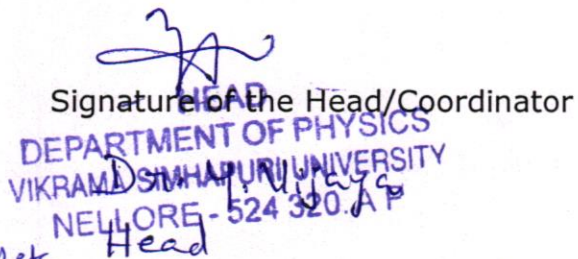 Signature of the Head/Coordinator
HEAD
DEPARTMENT OF PHYSICS
VIKRAMA SIMHAPURI UNIVERSITY
Dr. Y. Vijaya
NELLORE - 524 320. A P
Head